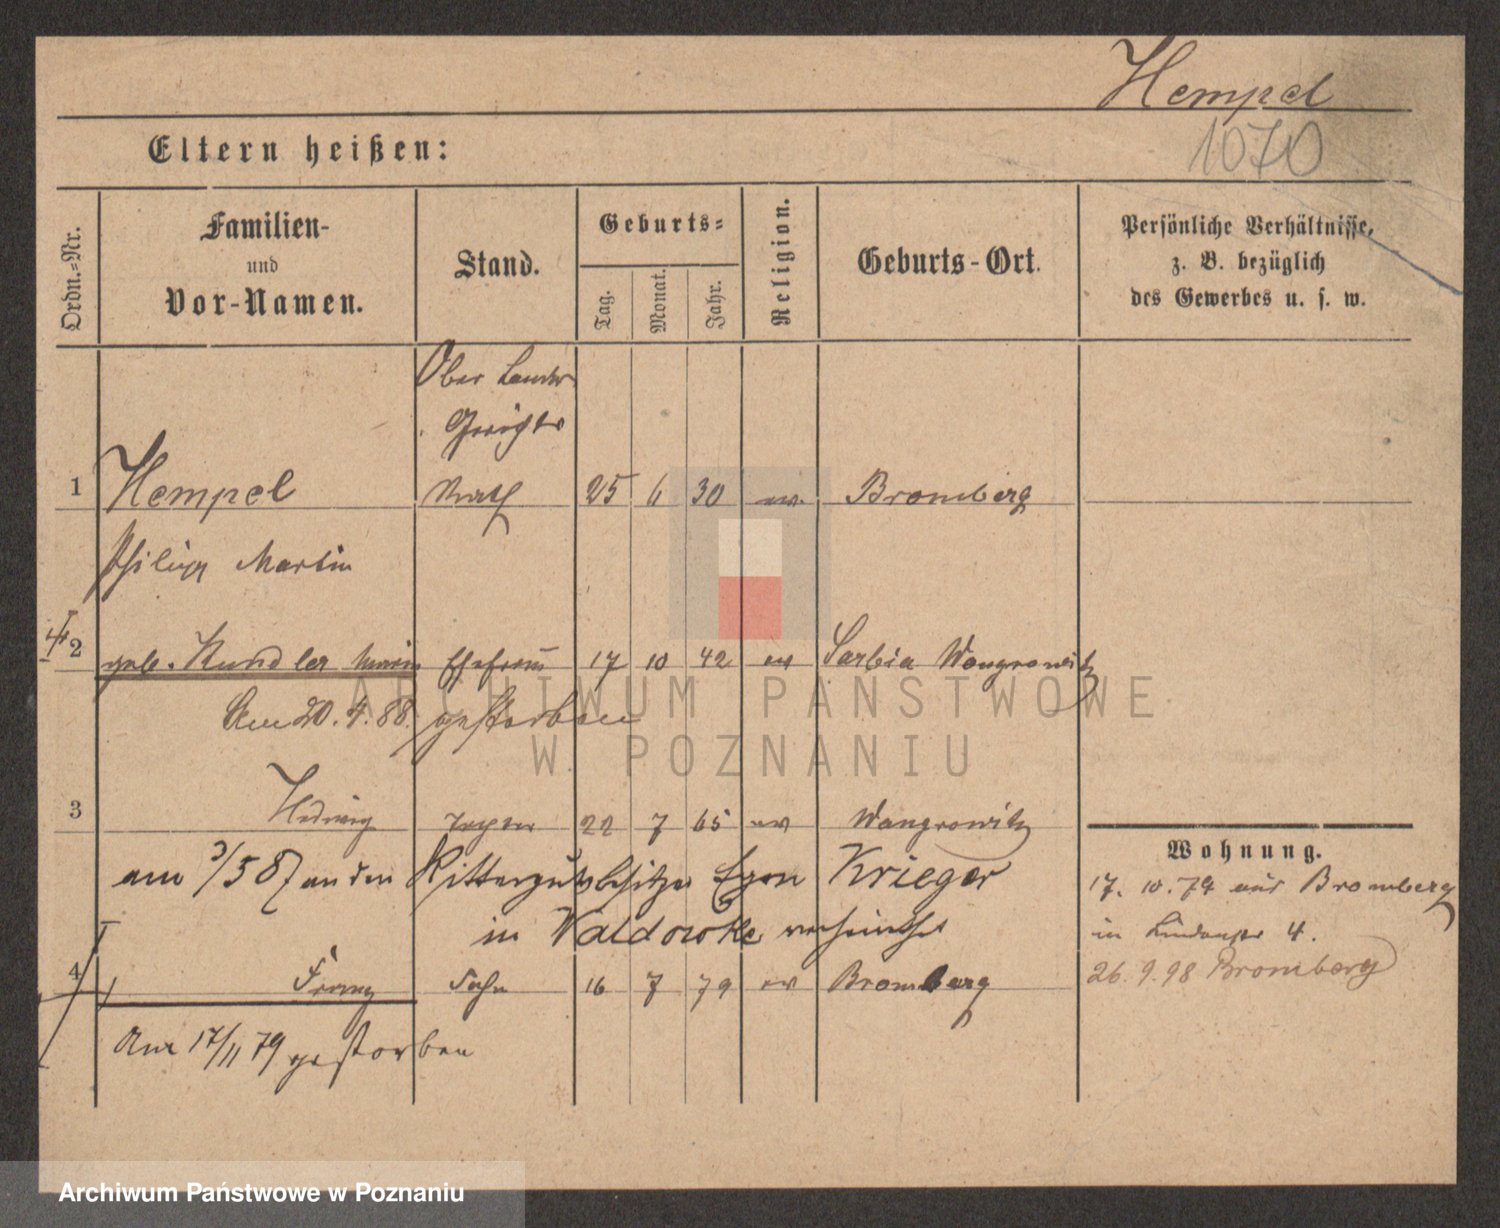 Hempel
1070
Eltern heißen:
Ordn.=Nr.
Familien-
und
Vor-Namen.
Stand.
Geburts=
Tag.
Monat.
Jahr.
Religion.
Geburts-Ort.
Persönliche Verhältnisse,
z. B. bezüglich
des Gewerbes u. s. w.
Ober Landes
Gerichts
1 Hempel Rath 25 6 30 ev. Bromberg
Philipp Martin
2 geb. Kundler Marie Ehefrau 17 10 42 ev Sarbia Wongrowitz
Am 20. 4. 88. gestorben
3 Hedwig Tochter 22 7 65 ev Wongrowitz
am 3/5 87 an den Rittergutsbesitzer Egon Krieger
in Waldowke verheirathet
4 Franz Sohn 16 7 79 ev Bromberg
Am 17/11 79 gestorben
Wohnung.
17. 10. 79 aus Bromberg
in 4.
26. 9. 98 Bromberg
ARCHIWUM PAŃSTWOWE
W POZNANIU
Archiwum Państwowe w Poznaniu